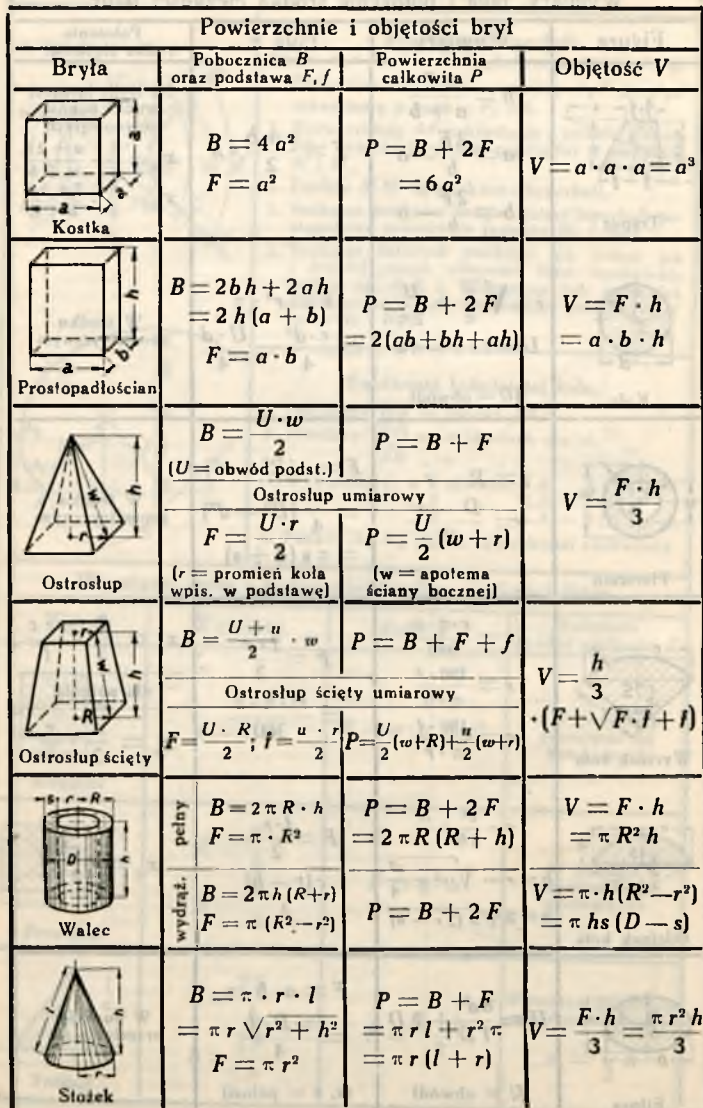 Powierzchnie i objętości brył
Bryła
Pobocznica B
oraz podstawa F, f
Powierzchnia
całkowita P
Objętość V
a
a
a
Kostka
B = 4 a²
F = a²
P = B + 2 F
= 6 a²
V = a · a · a = a³
h
a
b
Prostopadłościan
B = 2bh + 2ah
= 2 h (a + b)
F = a · b
P = B + 2 F
= 2 (ab + bh + ah)
V = F · h
= a · b · h
w
h
r
Ostrosłup
B = U·w / 2
(U = obwód podst.)
P = B + F
Ostrosłup umiarowy
F = U·r / 2
(r = promień koła
wpis. w podstawę)
P = U/2 (w + r)
(w = apotema
ściany bocznej)
V = F · h / 3
r
w
h
R
Ostrosłup ścięty
B = U + u / 2 · w
P = B + F + f
Ostrosłup ścięty umiarowy
F = U · R / 2; f = u · r / 2
P = U/2 (w+R) + u/2 (w+r)
V = h/3
· (F + √F · f + f)
s r R
D
h
Walec
pełny
B = 2 π R · h
F = π · R²
P = B + 2 F
= 2 π R (R + h)
V = F · h
= π R² h
wydrąż.
B = 2 π h (R+r)
F = π (R² — r²)
P = B + 2 F
V = π · h (R² — r²)
= π hs (D — s)
l
h
r
Stożek
B = π · r · l
= π r √r² + h²
F = π r²
P = B + F
= π r l + r² π
= π r (l + r)
V = F · h / 3 = π r² h / 3